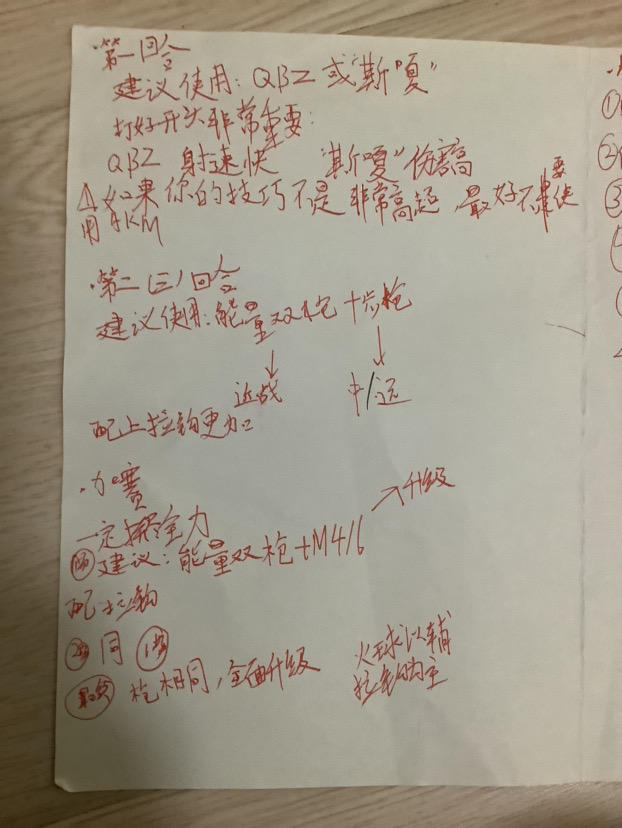 ·第一回合
建议使用:QBZ或"斯嘎"
打好开头非常重要:
QBZ 射速快 "斯嘎"伤害高
△如果你的技巧不是非常高超,最好不要使
用AKM
·第二(三)回合
建议使用:能量双枪+步枪
↓ ↓
近战 中/远
配上拉钩更加
·加赛
一定拼全力
建议:能量双枪+M416 →升级
配拉钩
同
枪相同,全面升级 火球以辅
拉钩为主
①
②
③